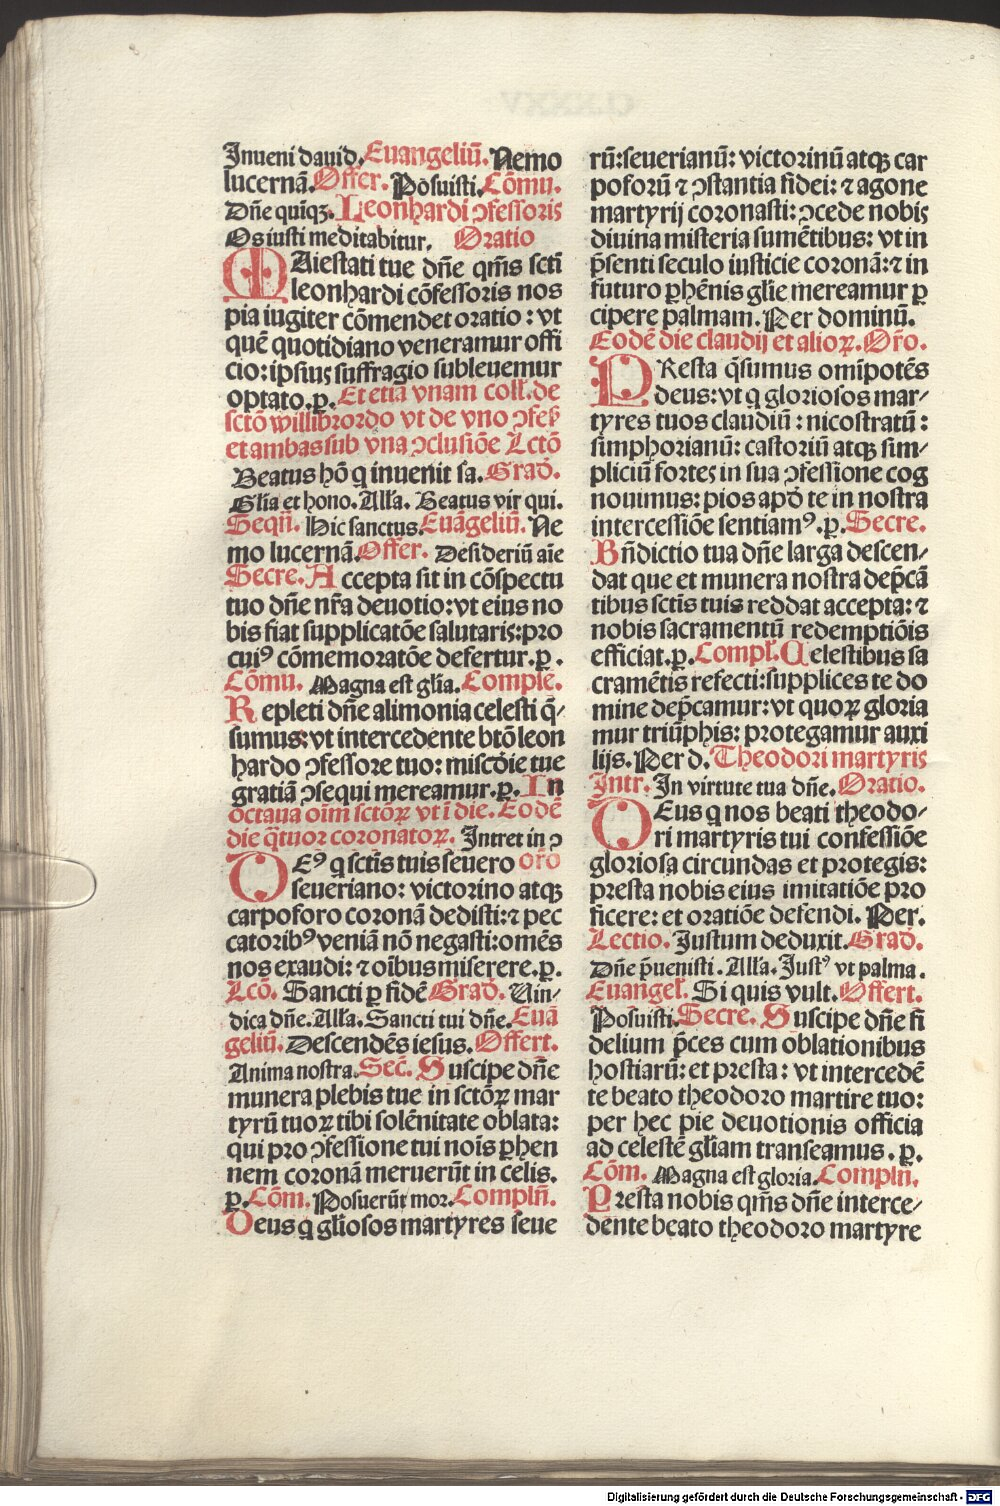 Inueni dauid. Euangeliū. Nemo
lucernā. Offer. Posuisti. Cōmu.
Dn̄e quiqꝫ. Leonhardi ꝯfessoris
Os iusti meditabitur. Oratio
MAiestati tue dn̄e qm̄s sctī
leonhardi cōfessoris nos
pia iugiter cōmendet oratio : vt
quē quotidiano veneramur offi
cio: ipsius suffragio subleuemur
optato. ꝑ. Et etiā vnam coll. de
sctō willibrordo vt de vno ꝯfes
et ambas sub vna ꝯclusiōe Lctō
Beatus hō q inuenit sa. Grad.
Glīa et hono. Alła. Beatus vir qui.
Seqn̄. Hic sanctus. Euāgeliū. Ne
mo lucernā. Offer. Desideriū aīe
Secre. Accepta sit in cōspectu
tuo dn̄e nr̄a deuotio: vt eius no
bis fiat supplicatōe salutaris: pro
cuiꝰ cōmemoratōe defertur. ꝑ.
Cōmu. Magna est glīa. Complē.
Repleti dn̄e alimonia celesti q̄⸗
sumus: vt intercedente btō leon
hardo ꝯfessore tuo: miscd̄ie tue
gratiā ꝯsequi mereamur. ꝑ. In
octaua oīm sctōꝝ vt ī die. Eodē
die q̄tuor coronatoꝝ. Intret in ꝯ
DEꝰ q sctīs tuis seuero orō
seueriano: victorino atqꝫ
carpoforo coronā dedisti: ⁊ pec
catoribꝰ veniā nō negasti: omēs
nos exaudi: ⁊ oībus miserere. ꝑ.
Lcō. Sancti ꝑ fidē Grad. Uin⸗
dica dn̄e. Alła. Sancti tui dn̄e. Euā
geliū. Descendēs iesus. Offert.
Anima nostra. Sec̄. Suscipe dn̄e
munera plebis tue in sctōꝝ mar
tyrū tuoꝝ tibi solēnitate oblata:
qui pro ꝯfessione tui noīs ꝑhen
nem coronā meruerūt in celis.
ꝑ. Cōm. Posuerūt mor. Compln̄.
Deus q glīosos martyres seue
rū: seuerianū: victorinū atqꝫ car
poforū ⁊ ꝯstantia fidei: ⁊ agone
martyrij coronasti: ꝯcede nobis
diuina misteria sumētibus: vt in
p̄senti seculo iusticie coronā: ⁊ in
futuro ꝑhēnis glīe mereamur ꝑ
cipere palmam. Per dominū.
Eodē die claudij et alioꝝ. Orō.
PResta q̄sumus omīpotēs
deus: vt q gloriosos mar⸗
tyres tuos claudiū : nicostratū :
simphorianū: castoriū atqꝫ sim⸗
pliciū fortes in sua ꝯfessione cog
nouimus: pios apd̄ te in nostra
intercessiōe sentiamꝰ. ꝑ. Secre.
Bn̄dictio tua dn̄e larga descen⸗
dat que et munera nostra dep̄cā
tibus sctīs tuis reddat accepta: ⁊
nobis sacramentū redemptiōis
efficiat. ꝑ. Compl. Celestibus sa
cramētis refecti: supplices te do
mine dep̄camur: vt quoꝝ gloria
mur triūphis: protegamur auxi
lijs. Per d. Theodori martyris
Intr. In virtute tua dn̄e. Oratio.
DEus q nos beati theodo⸗
ri martyris tui confessiōe
gloriosa circundas et protegis:
presta nobis eius imitatiōe pro
ficere: et oratiōe defendi. Per.
Lectio. Iustum deduxit. Grad.
Dn̄e p̄uenisti. Alła. Iustꝰ vt palma.
Euangel. Si quis vult. Offert.
Posuisti. Secre. Suscipe dn̄e fi
delium p̄ces cum oblationibus
hostiarū: et presta: vt intercedē
te beato theodoro martire tuo:
per hec pie deuotionis officia
ad celestē glīam transeamus. ꝑ.
Cōm. Magna est gloria. Compln̄.
Presta nobis qm̄s dn̄e interce⸗
dente beato theodoro martyre
Digitalisierung gefördert durch die Deutsche Forschungsgemeinschaft - DFG